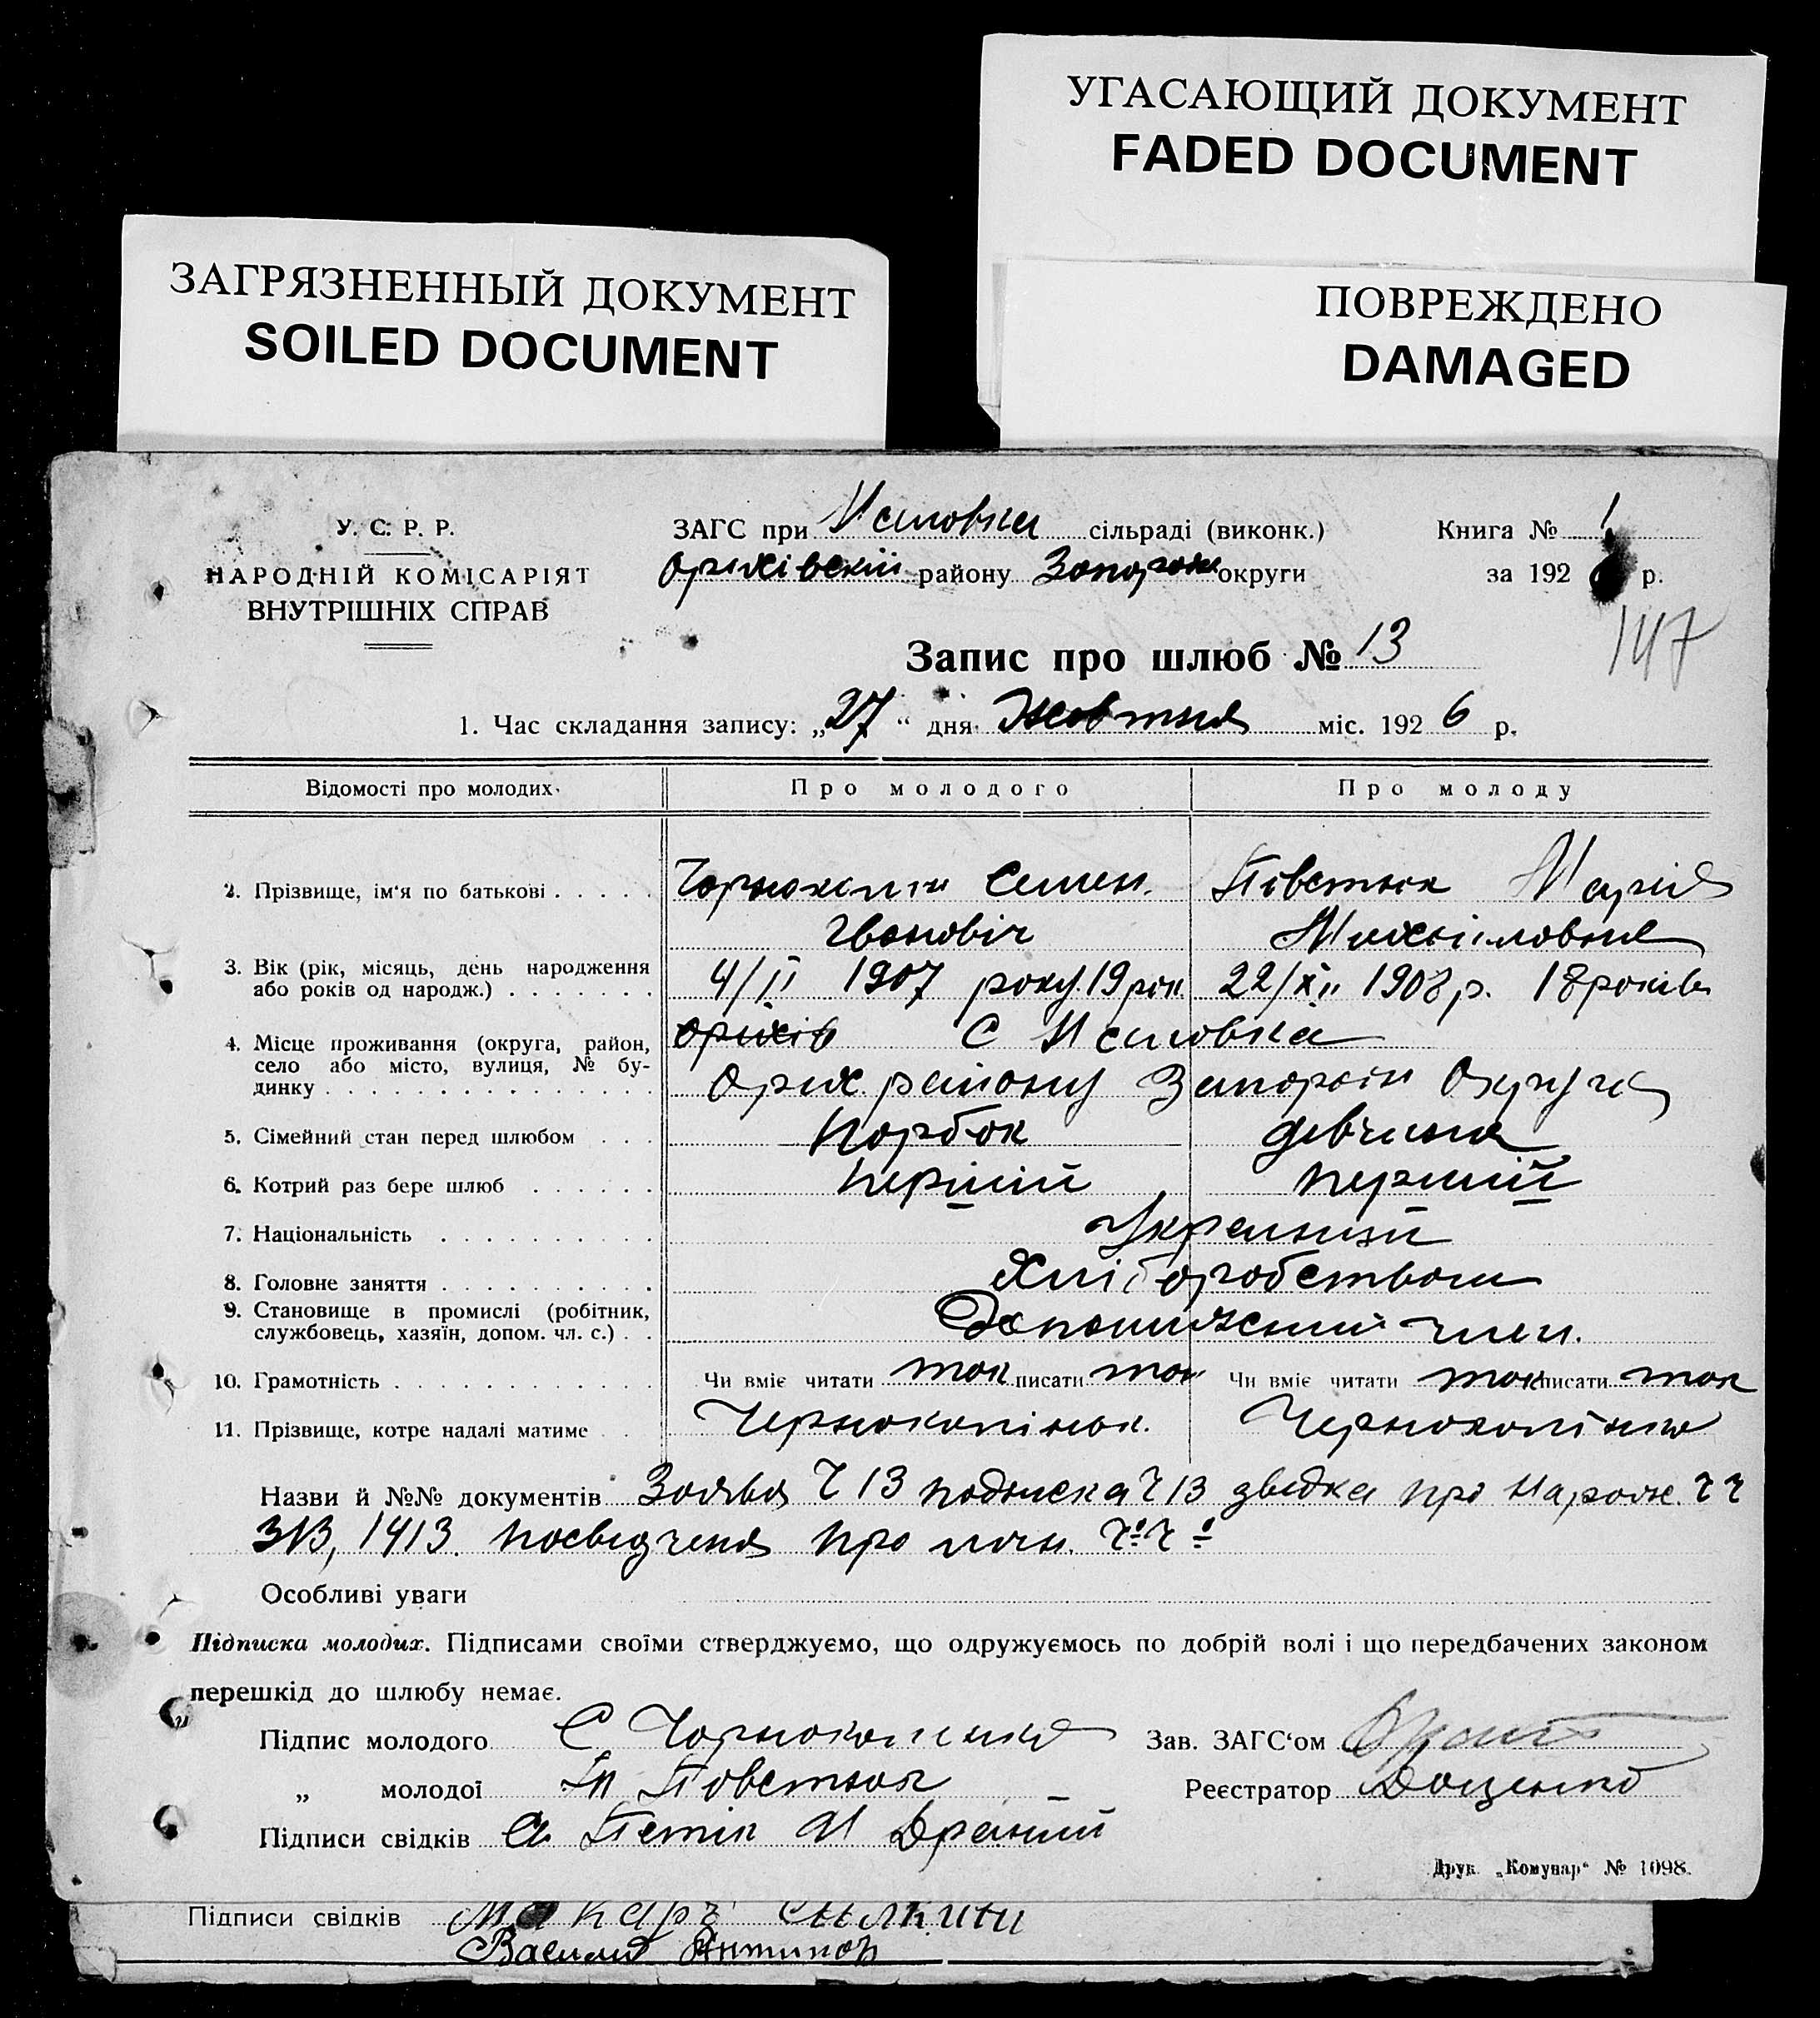 УГАСАЮЩИЙ ДОКУМЕНТ
FADED DOCUMENT
ЗАГРЯЗНЕННЫЙ ДОКУМЕНТ
SOILED DOCUMENT
ПОВРЕЖДЕНО
DAMAGED
У. С. Р. Р.
НАРОДНІЙ КОМІСАРІЯТ
ВНУТРІШНІХ СПРАВ
ЗАГС при сільраді (виконк.)
Оріхівскій району Запорож округи
Книга № 1
за 192 р.
147
Запис про шлюб № 13
1. Час складання запису: „27“ дня Жовтня міс. 1926 р.
Відомості про молодих Про молодого Про молоду
2. Прізвище, ім‘я по батькові Семен Повстюк Марія
Івановіч Михайловна
3. Вік (рік, місяць, день народження
або років од народж.) 4/II 1907 року 19 рок 22/XII 1908 р. 18 років
4. Місце проживання (округа, район,
село або місто, вулиця, № бу-
динку Оріхів С
Оріх. району Запорож Округи
5. Сімейний стан перед шлюбом Парбок дівчина
6. Котрий раз бере шлюб перший перший
7. Національність
8. Головне заняття Хліборобством
9. Становище в промислі (робітник,
службовець, хазяїн, допом. чл. с.) член.
10. Грамотність Чи вміє читати так писати так Чи вміє читати так писати так
11. Прізвище, котре надалі матиме
Назви й №№ документів Заява Ч 13 подписка Ч 13 звідка про Народж. Ч Ч
313, 1413. посвідченя про
Особливі уваги
Підписка молодих. Підписами своїми стверджуємо, що одружуємось по добрій волі і що передбачених законом
перешкід до шлюбу немає.
Підпис молодого С
„ молодої
Підписи свідків
Зав. ЗАГС‘ом
Реєстратор Доценко
Друк. „Комунар“ № 1098.
Підписи свідків Макаръ
Василий Антипов